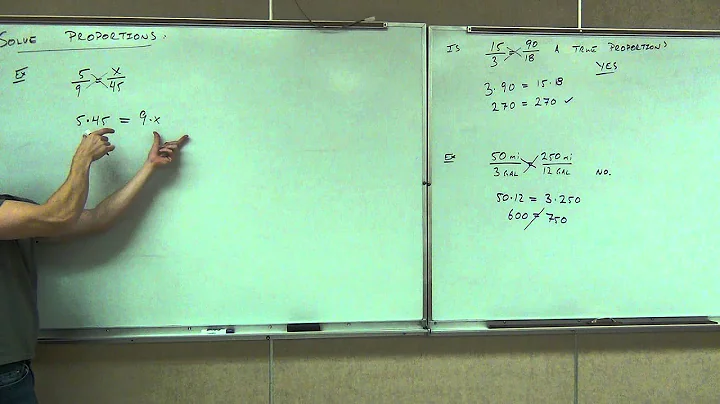 SOLVE PROPORTIONS:
Ex 5/9 = x/45
5·45 = 9·x
IS 15/3 = 90/18 A TRUE PROPORTION?
YES
3·90 = 15·18
270 = 270 ✓
Ex 50 mi/3 GAL = 250 mi/12 GAL NO.
50·12 = 3·250
600 ≠ 750